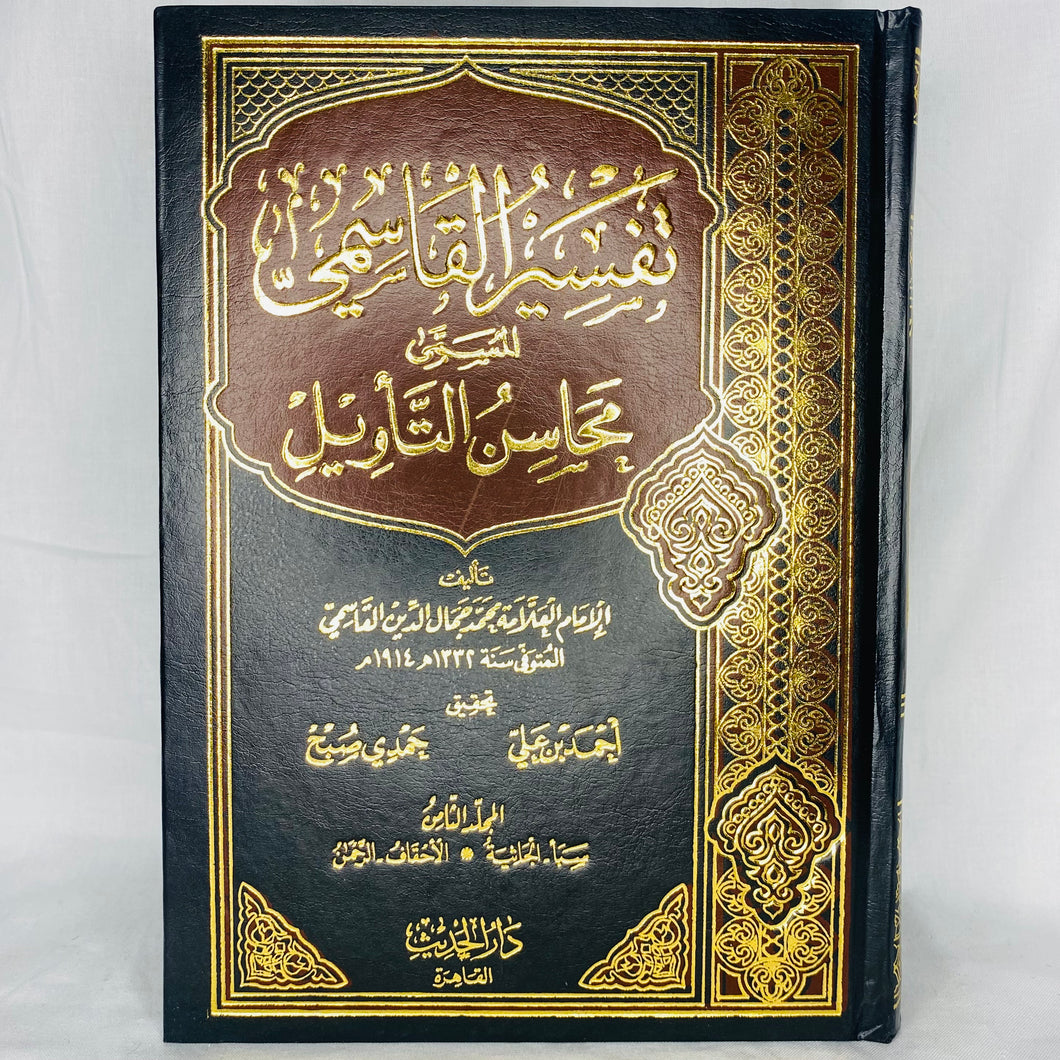 تَفْسِيرُ القَاسِمِيِّ
المُسَمَّىٰ
مَحَاسِنُ التَّأْوِيْلِ
تأليف
الإمام العلَّامة محمَّد جمال الدِّين القاسميّ
المتوفّى سَنة ١٣٣٢هـ ١٩١٤م
تحقيق
أحمد بن عليّ    حمدي صُبْح
المجلّد الثّامنُ
سبأ - الجاثية * الأحقاف - الرّحمٰن
دَارُ الحَدِيث
القاهرة